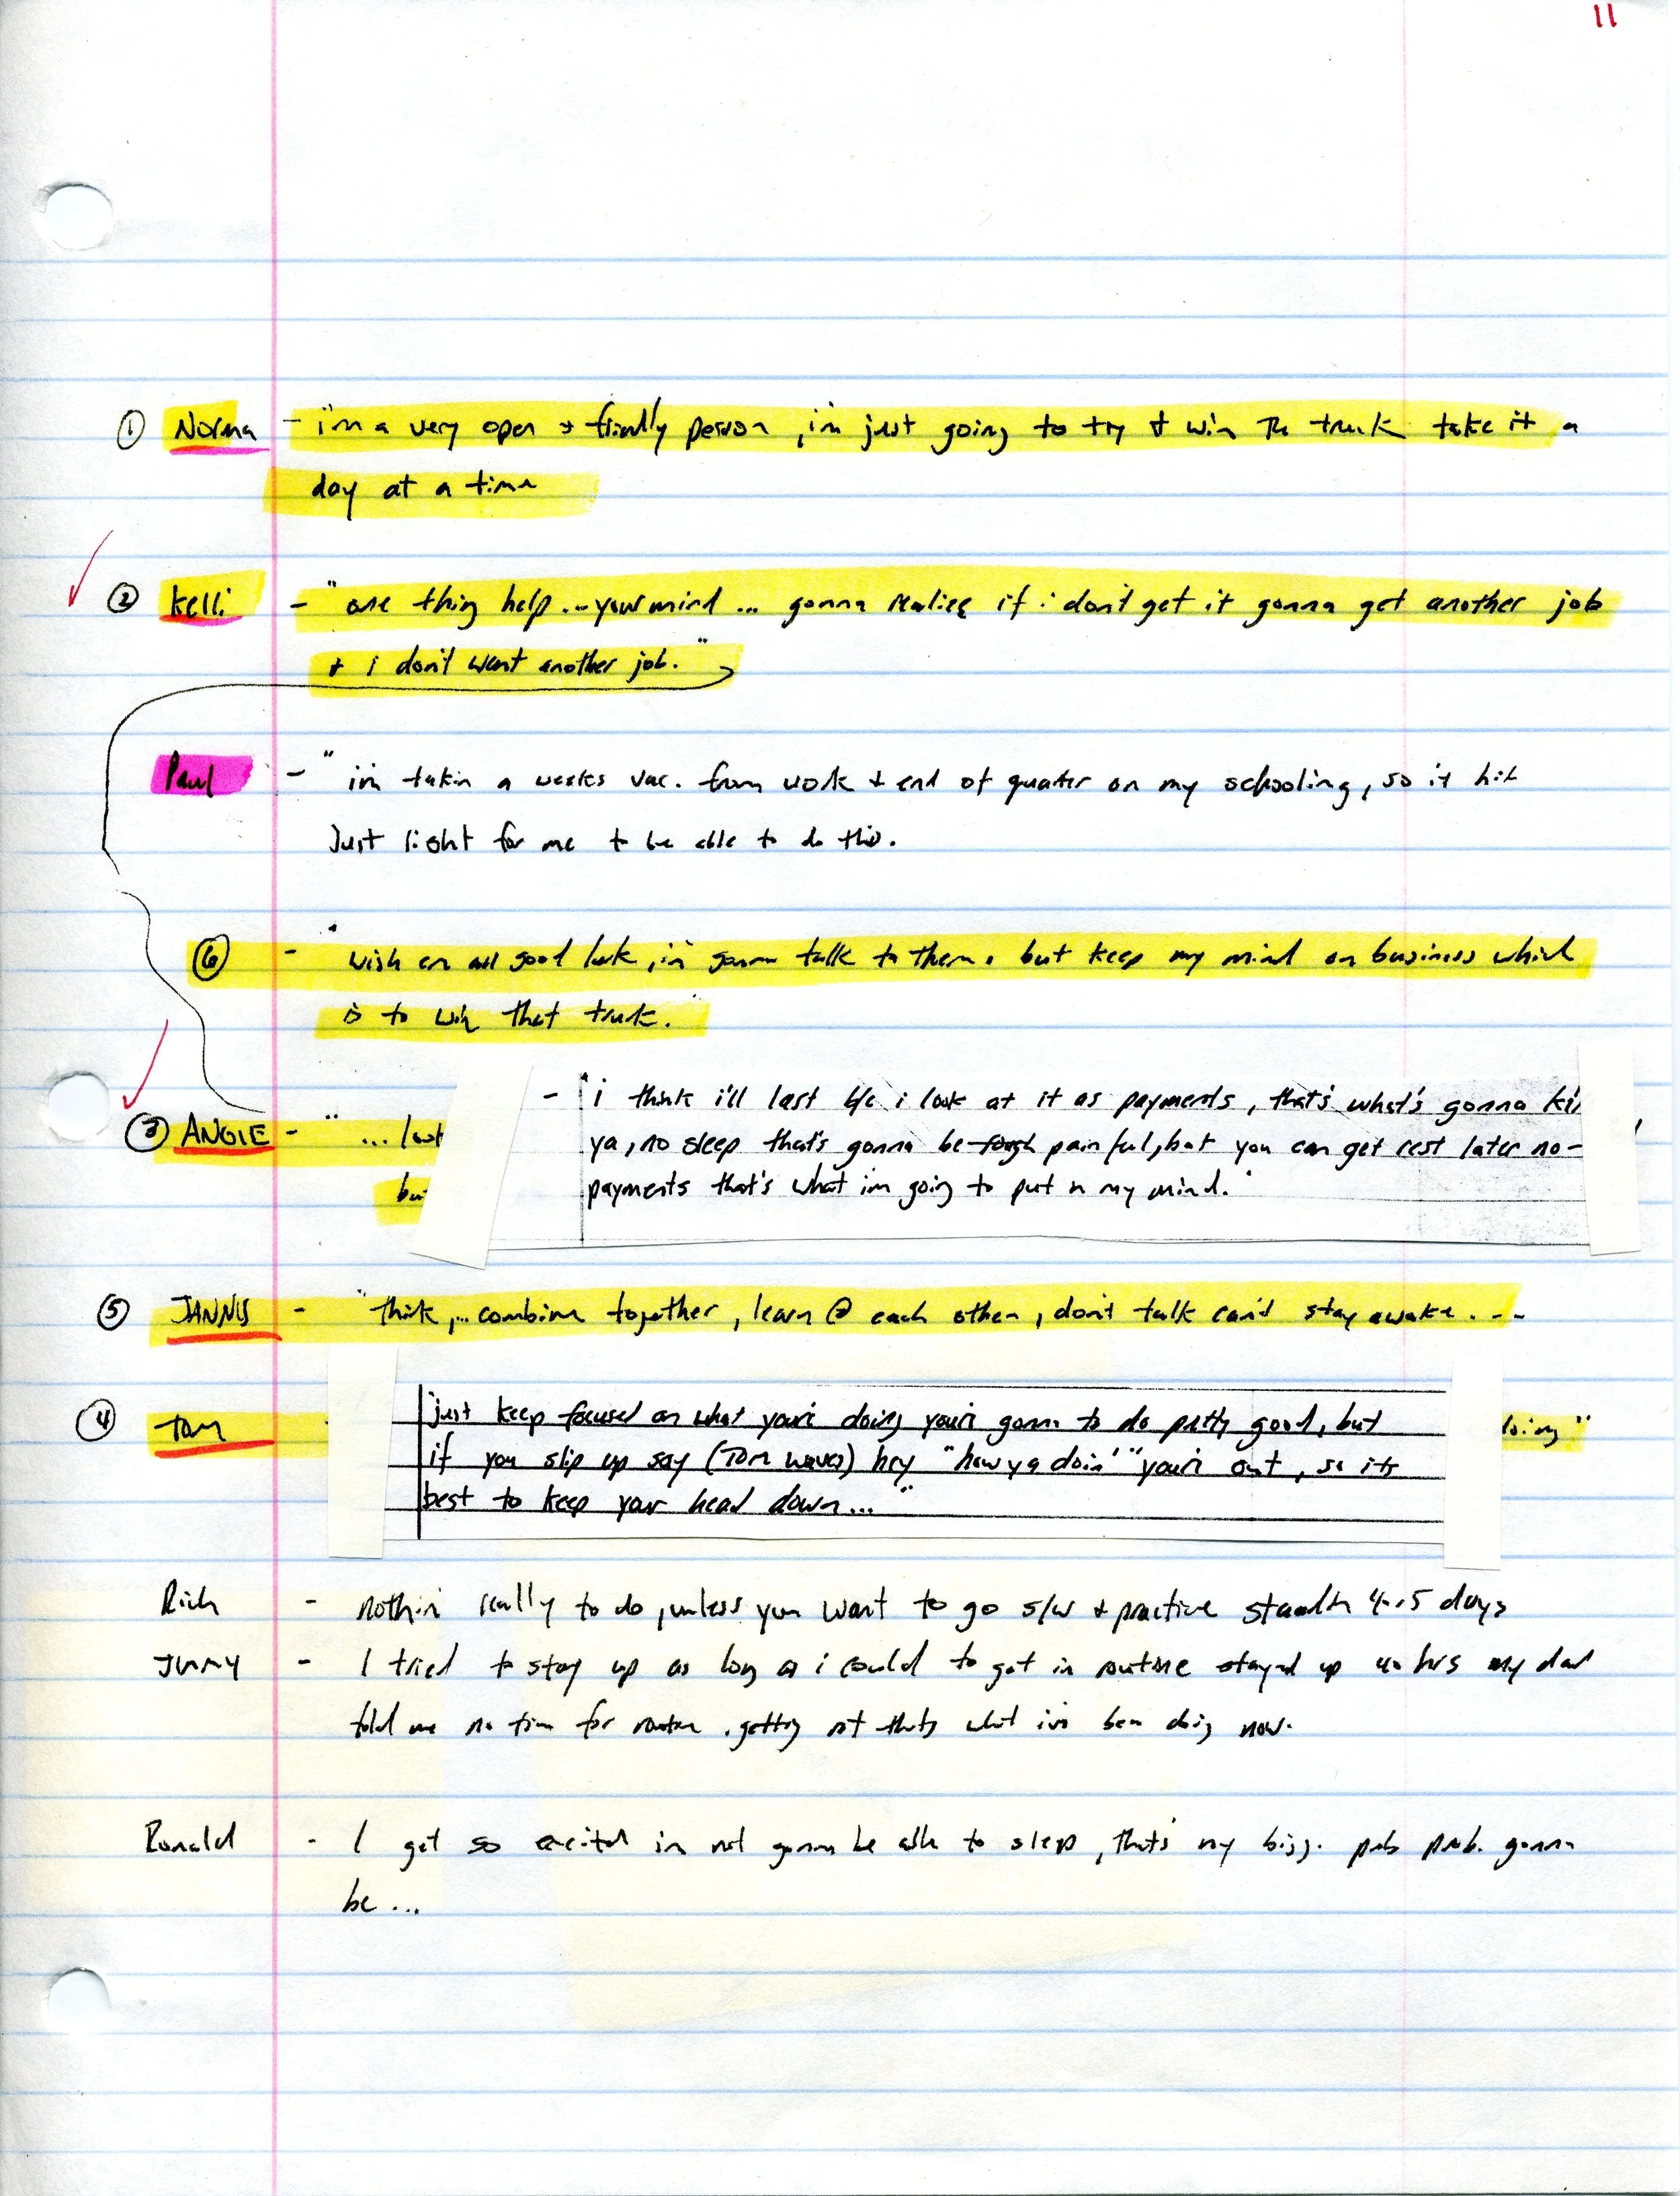 11
① Norma - i'm a very open + friendly person, i'm just going to try & win the truck take it a
day at a time
② Kelli - "one thing help... your mind... gonna realize if i don't get it gonna get another job
+ i don't want another job."
Paul - "i'm takin a weeks vac. from work + end of quarter on my schooling, so it hit
Just right for me to be able to do this.
⑥ - "wish em all good luck, i'm gonna talk to them, but keep my mind on business which
is to win that truck."
- "i think i'll last b/c i look at it as payments, that's what's gonna
③ ANGIE - "...
ya, no sleep that's gonna be tough painful, but you can get rest later no-
payments that's what im going to put n my mind."
⑤ JANNIS - "think,... combine together, learn @ each other, don't talk can't stay awake. ---
④ Tom
just keep focused on what you're doing you're gonna to do pretty good, but
doing"
if you slip up say (Tom waves) hey "how ya doin'" you're out, so its
best to keep your head down..."
Rich - nothin' really to do, unless you want to go s/w + practice 4-5 days
- I tried to stay up as long as i could to get in routine stayed up 40 hrs my dad
told me no time for routine, getting that's what i've been doing now.
Ronald - I get so excited im not gonna be able to sleep, that's my bigg. prob prob. gonna
be...